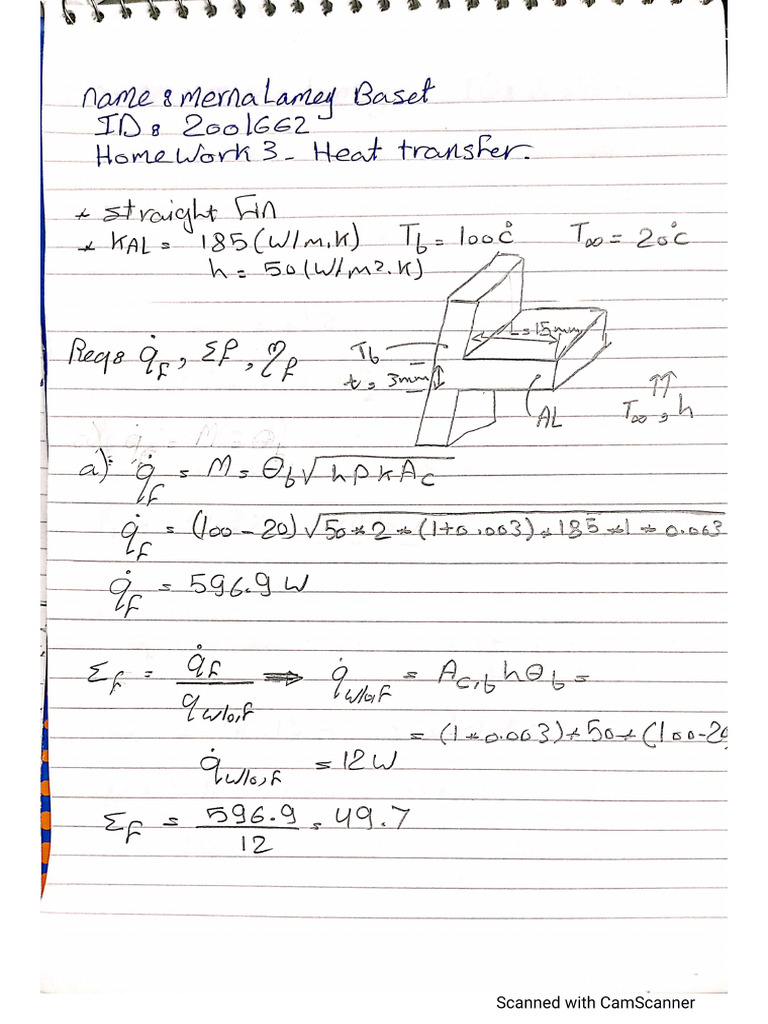 name : merna Lamey Baset
ID : 2001662
Home Work 3 - Heat transfer.
* straight fin
* kAL = 185 (W/m.K) Tb = 100°C T∞ = 20°C
h = 50 (W/m².K)
L = 15mm
Req : q̇f, Σf, ηf
Tb
t = 3mm
AL
T∞, h
a) : q̇f = M = θb√hPkAc
q̇f = (100 - 20) √50*2*(1+0.003)*185*1*0.003
q̇f = 596.9 W
Σf = q̇f / qw/o,f ⟹ q̇w/o,f = Ac,b hθb =
= (1*0.003)*50*(100-20
q̇w/o,f = 12 W
Σf = 596.9 / 12 = 49.7
Scanned with CamScanner